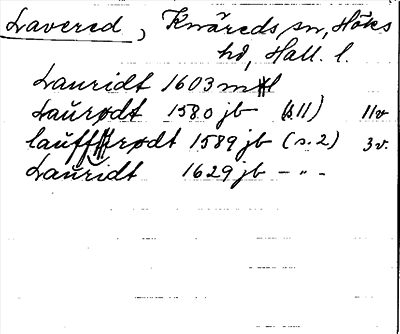 Lavered, Knäreds sn, Höks
hd, Hall. l.
Lauridt 1603 mtl
Laŭrødt 1580 jb (s 11) 11v
lauffrødt 1589 jb (s. 2) 3v.
Laŭridt 1629 jb - " -